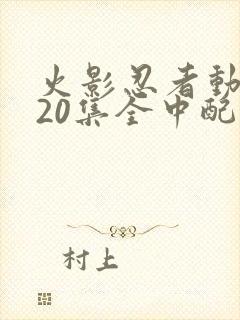 火影忍者動
20集全中配
村上